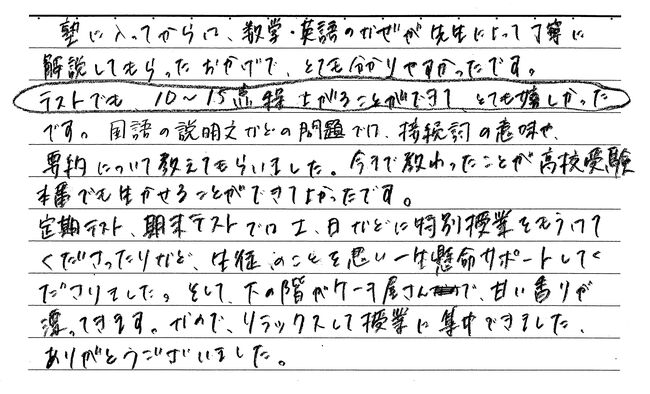 塾に入ってからは、数学・英語のなぜが先生によって丁寧に
解説してもらったおかげで、とても分かりやすかったです。
テストでも、10〜15点程上がることができて、とても嬉しかった
です。国語の説明文などの問題では、接続詞の意味や、
要約について教えてもらいました。今まで教わったことが高校受験
本番でも生かせることができてよかったです。
定期テスト、期末テストでは土、日などに特別授業をもうけて
くださったりなど、生徒のことを思い一生懸命サポートしてく
ださりました。そして、下の階がケーキ屋さんで、甘い香りが
漂ってきます。なので、リラックスして授業に集中できました、
ありがとうございました。